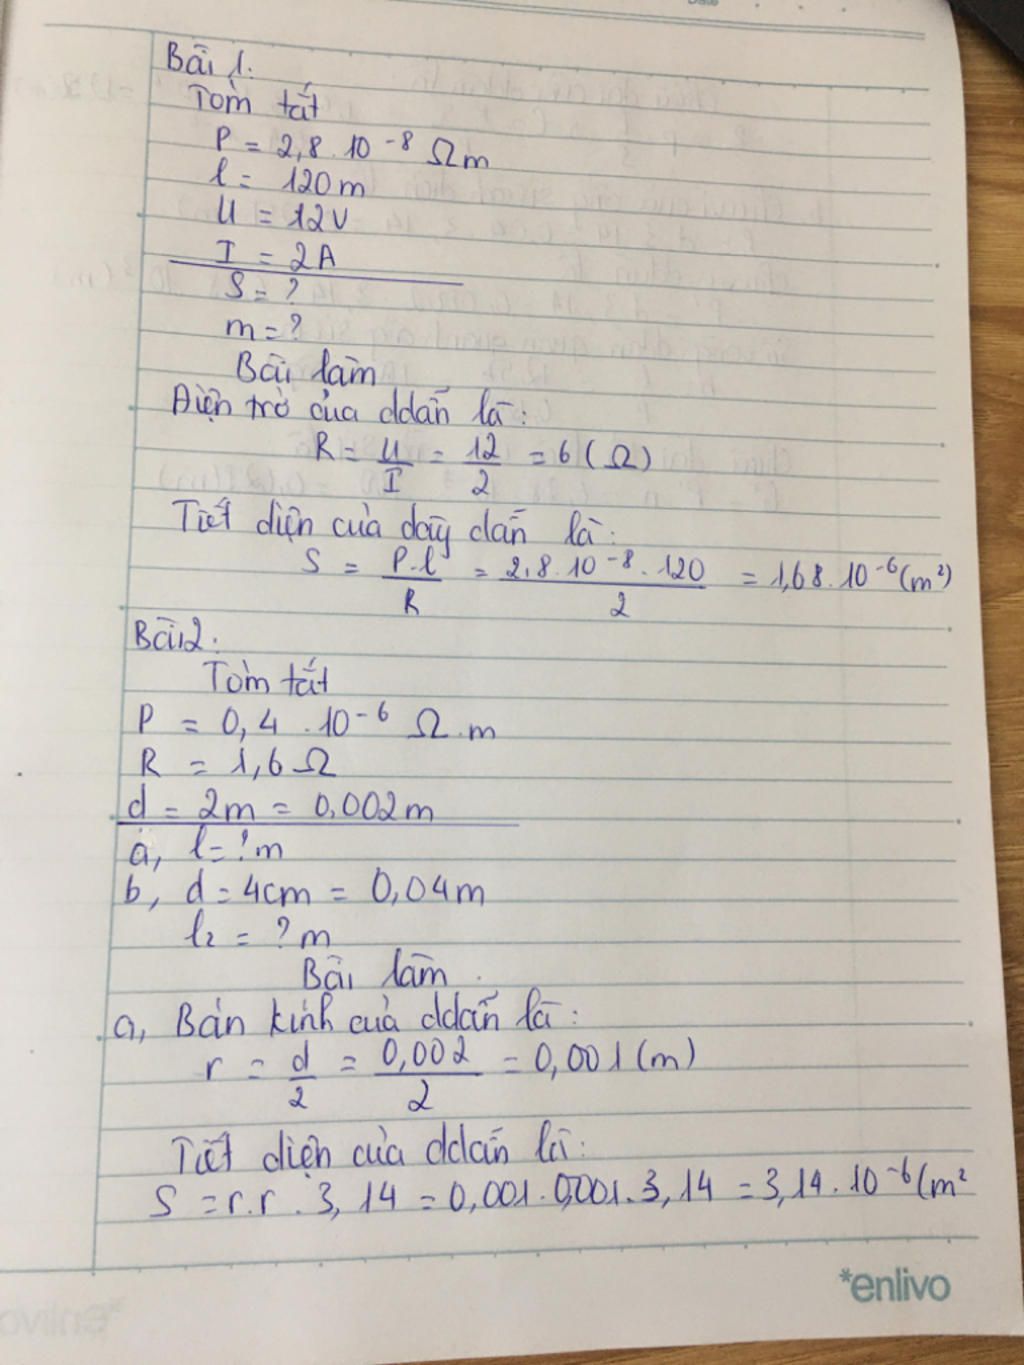 Bài 1.
Tóm tắt
P = 2,8 . 10⁻⁸ Ωm
l = 120m
U = 12V
I = 2A
S = ?
m = ?
Bài làm
Điện trở của ddẫn là:
R = U/I = 12/2 = 6 (Ω)
Tiết diện của dây dẫn là:
S = P.l/R = 2,8.10⁻⁸.120/2 = 1,68.10⁻⁶(m²)
Bài 2:
Tóm tắt
P = 0,4 . 10⁻⁶ Ω.m
R = 1,6Ω
d = 2m = 0,002m
a, l = ?m
b, d = 4cm = 0,04m
l₂ = ?m
Bài làm
a, Bán kính của ddẫn là:
r = d/2 = 0,002/2 = 0,001(m)
Tiết diện của ddẫn là:
S = r.r.3,14 = 0,001.0,001.3,14 = 3,14.10⁻⁶(m²
*enlivo